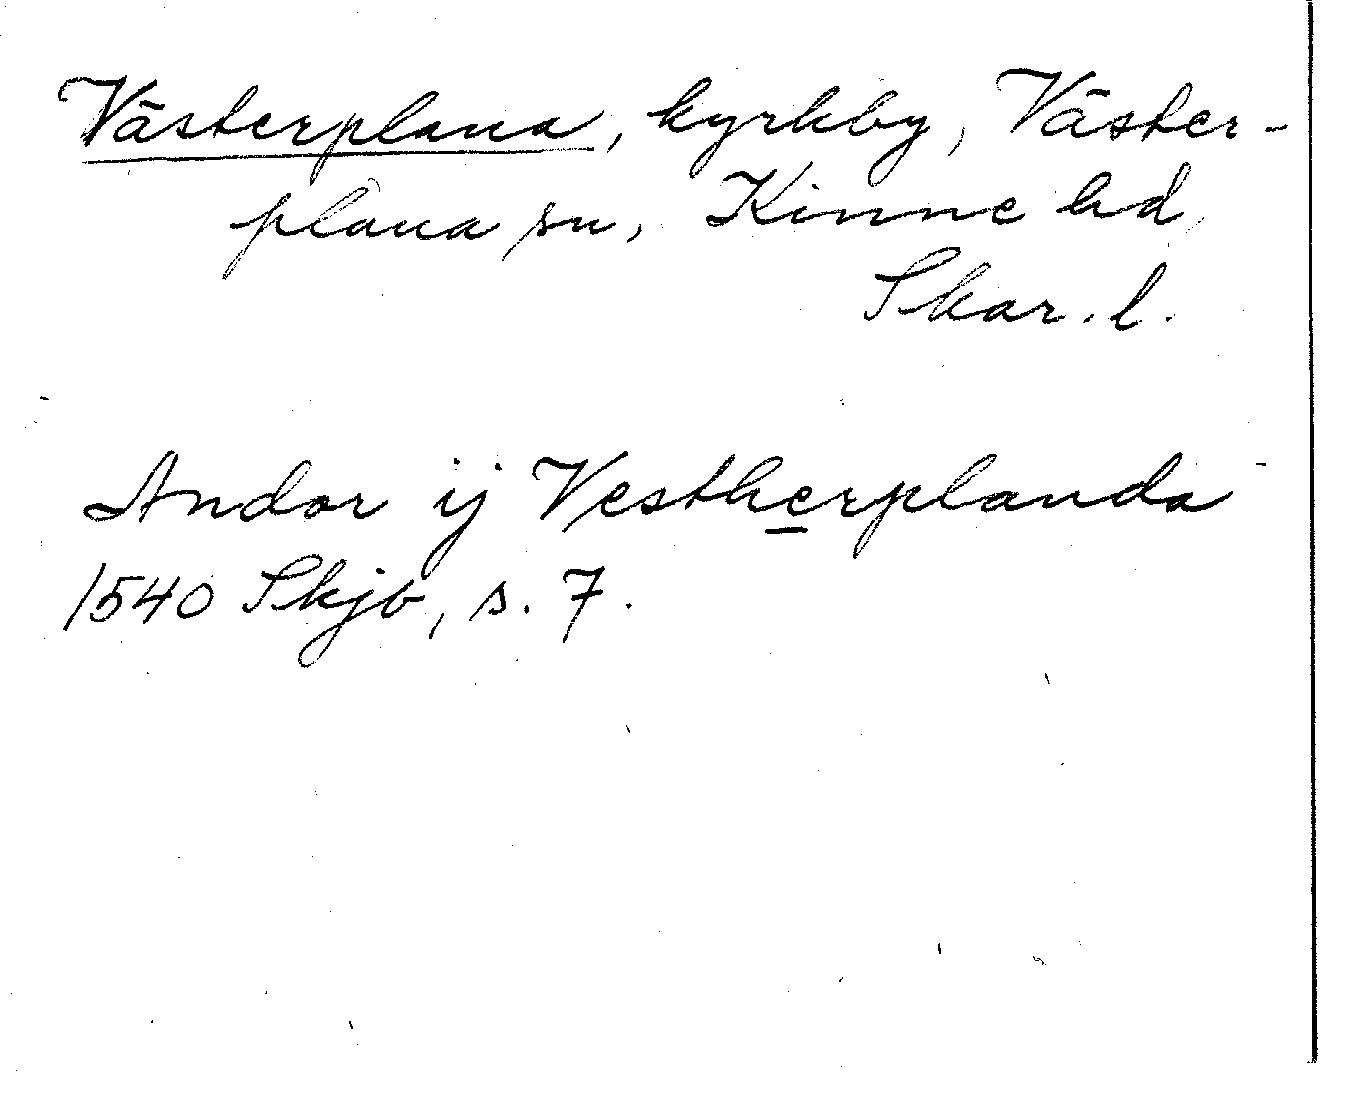 Västerplana, kyrkby, Väster-
plana sn, Kinne hd,
Skar. l.
Andor ij Vestherplanda
1540 Skjb, s. 7.